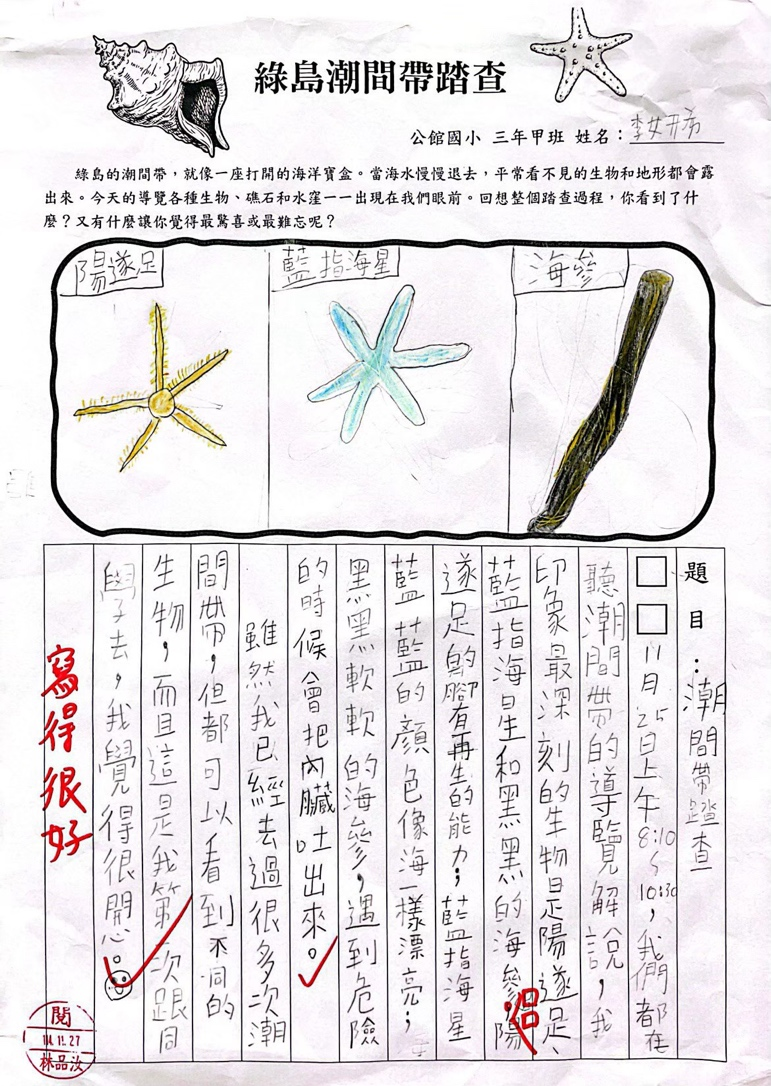 綠島潮間帶踏查
公館國小 三年甲班 姓名：李妍
綠島的潮間帶，就像一座打開的海洋寶盒。當海水慢慢退去，平常看不見的生物和地形都會露
出來。今天的導覽各種生物、礁石和水窪一一出現在我們眼前。回想整個踏查過程，你看到了什
麼？又有什麼讓你覺得最驚喜或最難忘呢？
陽遂足
藍指海星
海參
題目：潮間帶踏查
11月25日上午8:10~10:30，我們都在
聽潮間帶的導覽解說，我
印象最深刻的生物是陽遂足、
藍指海星和黑黑的海參。陽
遂足的腳有再生的能力；藍指海星
藍藍的顏色像海一樣漂亮；
黑黑軟軟的海參，遇到危險
的時候會把內臟吐出來。
雖然我已經去過很多次潮
間帶，但都可以看到不同的
生物，而且這是我第一次跟同
學去，我覺得很開心。
寫得很好
閱
114.11.27
林品汝